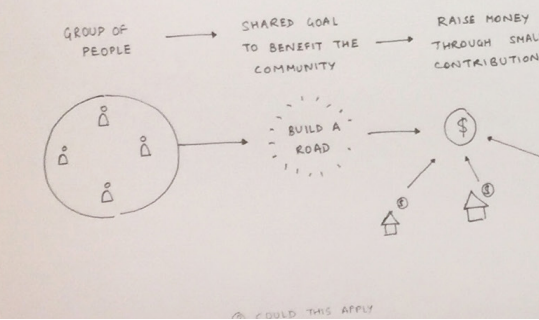 GROUP OF
PEOPLE
SHARED GOAL
TO BENEFIT THE
COMMUNITY
RAISE MONEY
THROUGH SMAL
CONTRIBUTION
BUILD A
ROAD
$
$
$
COULD THIS APPLY